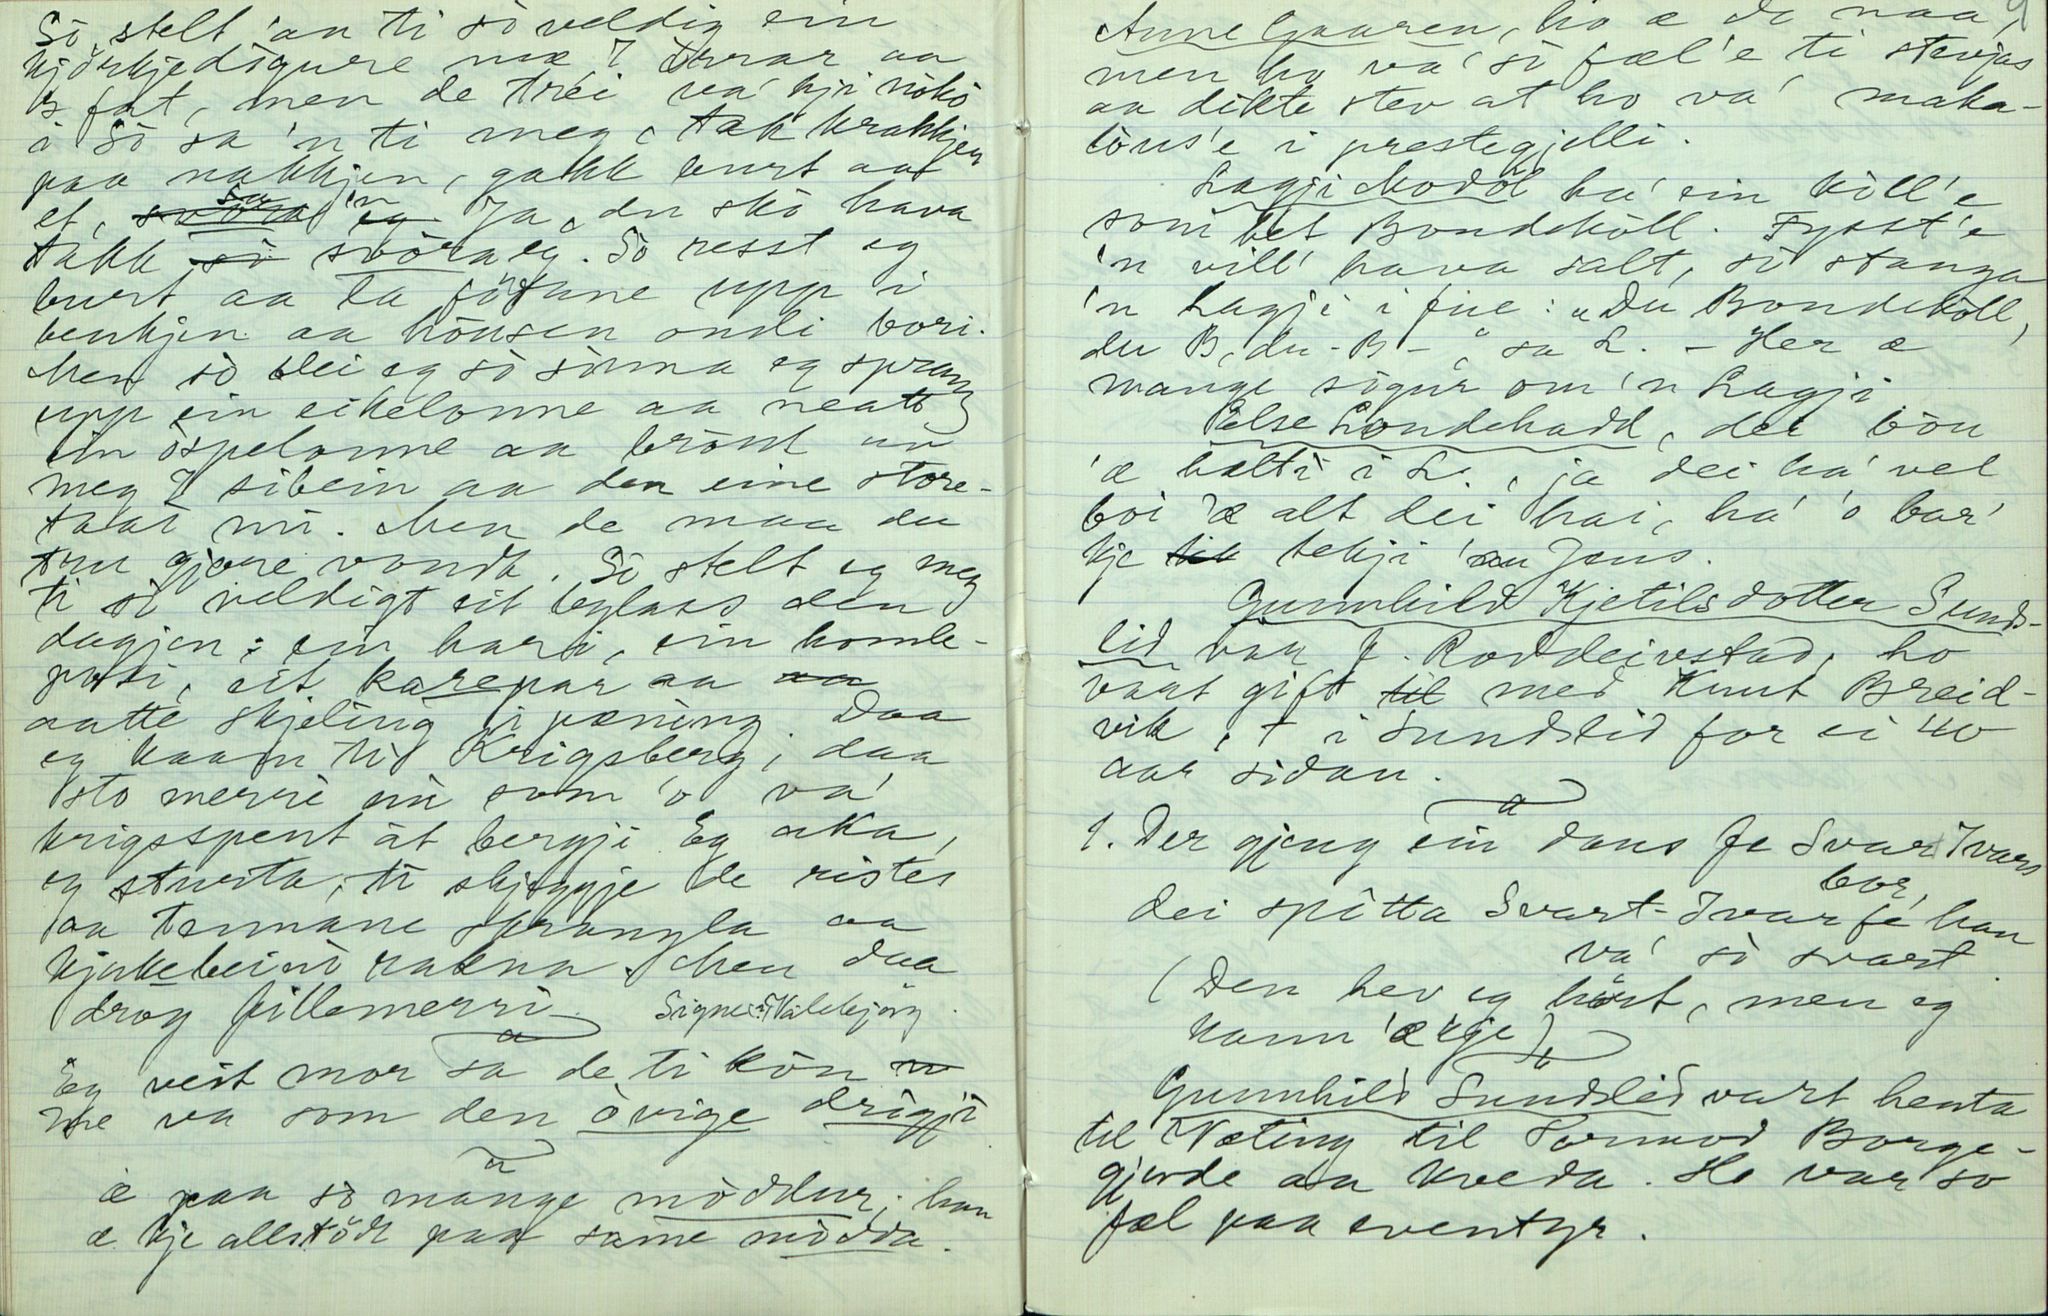 Sò stelt 'an ti sò veldig ein
kjørkjedigure mæ 7 örrar aa
fat, men de trei va' kji nòkò
i Sò sa 'n ti meg, tak krakkjen
paa nakkjen, gakk burt aat
el, sa 'n Ja, du skò hava
takk svòra eg. Sò resst eg
burt aa la föttane upp i
benkjen aa hòusen ondi bori.
Men sò slei eg sò sònna eg sprang
upp ein eikelonne aa neatt
ein òspelonne aa bròut ùn
meg 7 sibein aa den eine store-
taai mi. Men de maa du
tru gjore vondt. Sò stelt eg meg
ti sò veldigt eit byglass den
dagjen: ein hari, ein homle-
posi, eit karepar aa
aatte skjeling i pæning Daa
eg kaam til Krigsberg, daa
sto merri mi som 'o va'
krigsspent åt bergji Eg aka,
eg sturta, ti skjeggje de ristes
aa tennane skrangla aa
kjakebeini rakna. Men daa
drog fillemerri. Signe Vålebjörg.
Eg veit mor sa de ti kòn
Me va som den òvige drigji
æ paa sò mange mòddur; han
æ kje allstödt paa same mòdda.
9
Anne Gaaren, ho æ do naa,
men ho va' sò fæl'e ti stevjas
aa dikte stev at ho va' maka-
lòus'e i prestegjelli.
Lagji Modòl ha' ein kòll'e
som het Bondekòll. Fysst'e
'n vill' hava salt, sò stanga
'n Lagji i fue: "Du Bondekòll,
du B, du - B -," sa L. - Her æ
mange sògur om 'n Lagji.
Else Londehadd, dei bòu
'æ halti i L., ja dei ha' vel
boi 'æ alt dei hai, ha' 'o bar'
kje tekji 'an Jens.
Gunnhild Kjetilsdotter Sunds-
lid var f. Roddeivstad, ho
vart gift med Knut Breid-
vik, † i Sundslid for ei 40
aar sidan.
1. Der gjeng ein dans fe Svart Ivars
bor,
dei spitta Svart-Ivar fe han
va' sò svart
(Den hev eg hòrt, men eg
kann 'æ kje)
Gunnhild Sundslid vart henta
til Væting til Tormod Borge-
gjerde aa kveda. Ho var so
fæl paa eventyr.